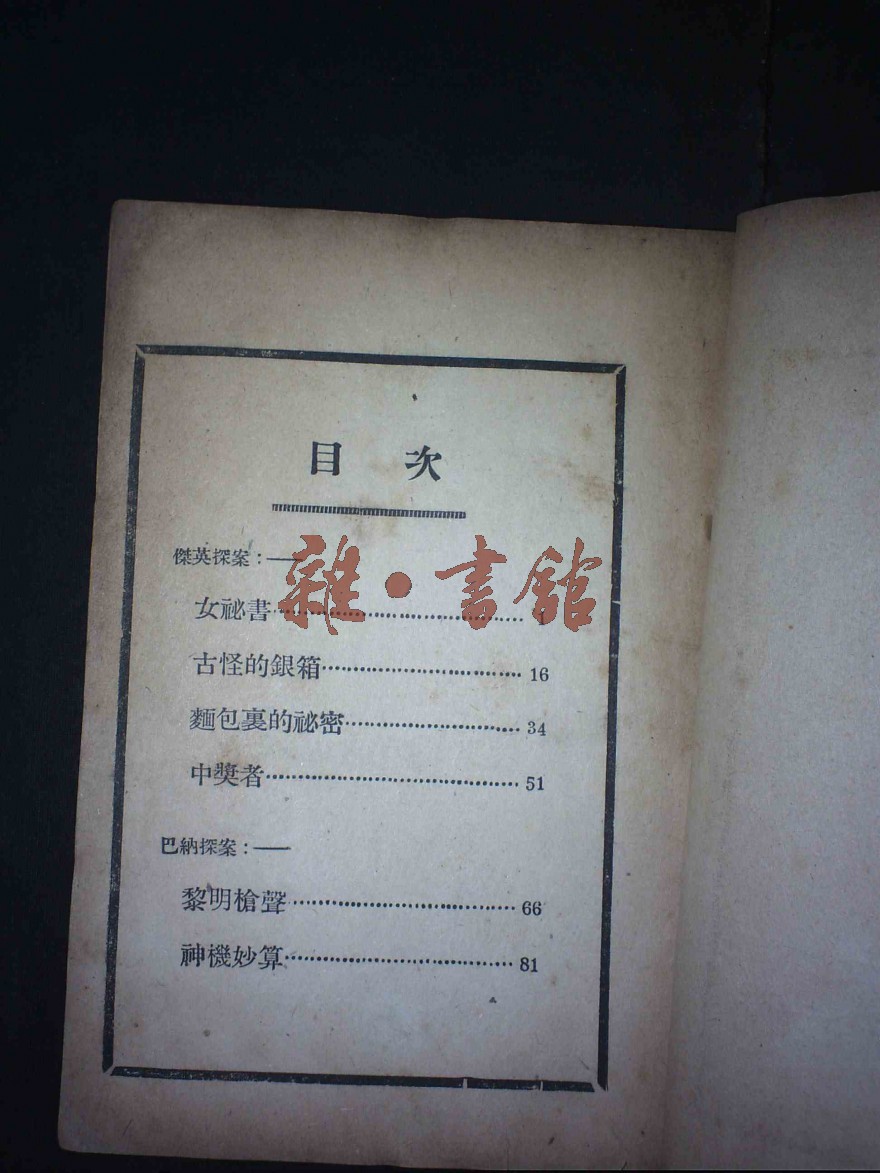 目 次
傑英探案：——
雜·書館
女祕書…………………………1
古怪的銀箱…………………………16
麵包裏的祕密…………………………34
中獎者…………………………51
巴納探案：——
黎明槍聲…………………………66
神機妙算…………………………81